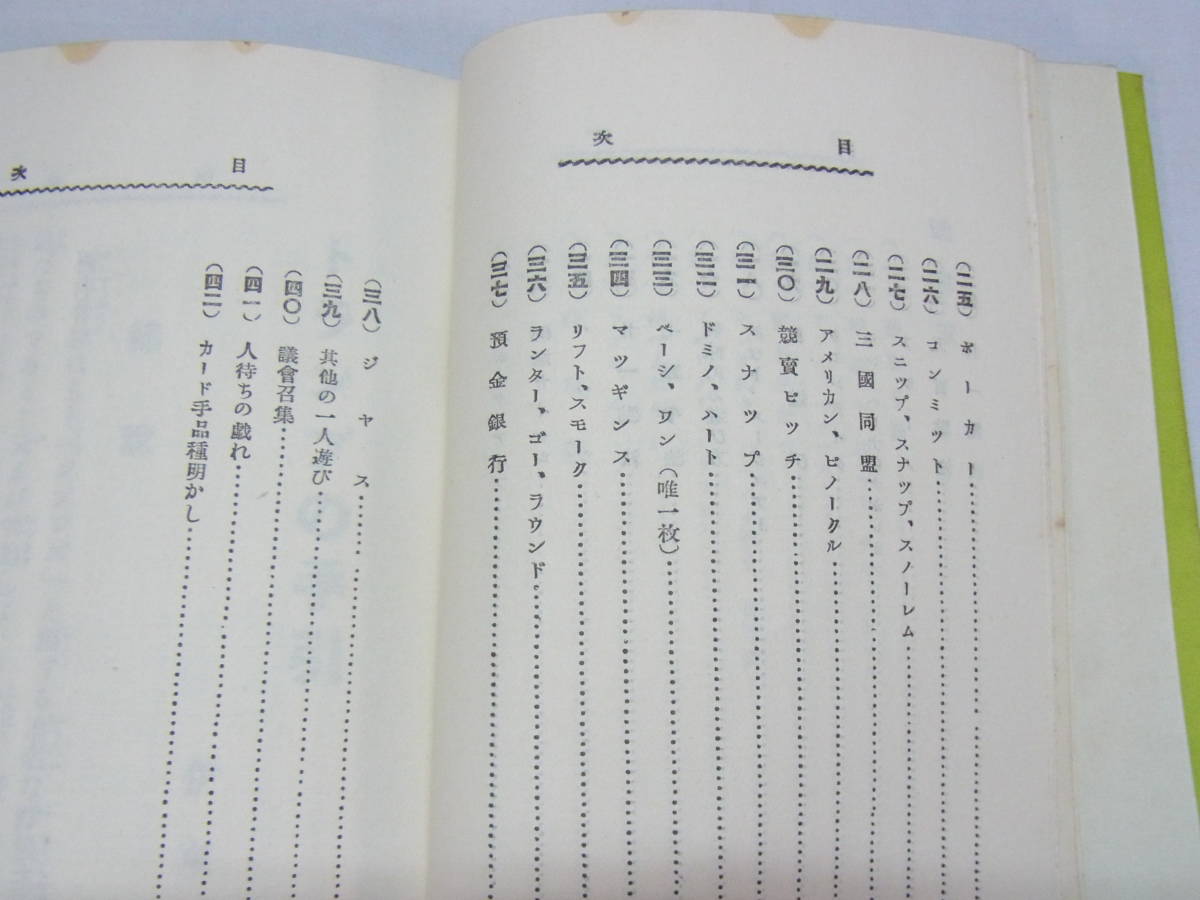 目次
（二五）ポーカー
（二六）コンミット
（二七）スニップ、スナップ、スノーレム
（二八）三國同盟
（二九）アメリカン、ピノークル
（三〇）競賣ピッチ
（三一）スナツプ
（三二）ドミノ、ハート
（三三）ページ、ワン（唯一枚）
（三四）マツギンス
（三五）リフト、スモーク
（三六）ランター、ゴー、ラウンド
（三七）預金銀行
目次
（三八）ジヤス
（三九）其他の一人遊び
（四〇）議會召集
（四一）人待ちの戯れ
（四二）カード手品種明かし